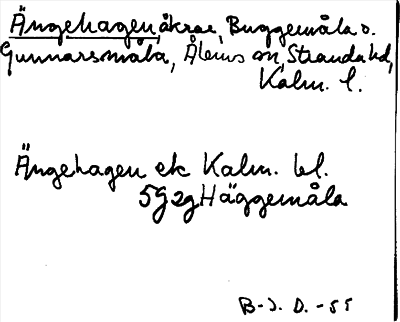 Ängehagen, åkrar, Buggemåla o.
Gunnarsmåla, Ålems sn, Stranda hd,
Kalm. l.
Ängehagen ek Kalm. bl.
5G2g Häggemåla
B-J. D. -55